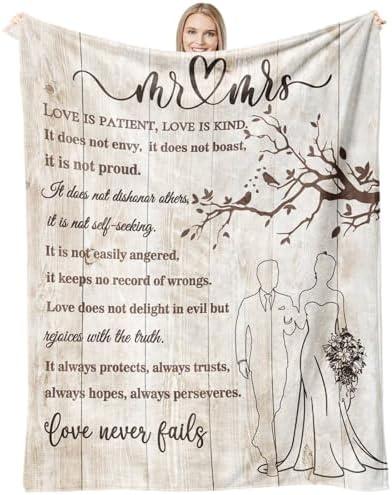 mr mrs
LOVE IS PATIENT, LOVE IS KIND.
It does not envy, it does not boast,
it is not proud.
It does not dishonor others,
it is not self-seeking.
It is not easily angered,
it keeps no record of wrongs.
Love does not delight in evil but
rejoices with the truth.
It always protects, always trusts,
always hopes, always perseveres.
Love never fails